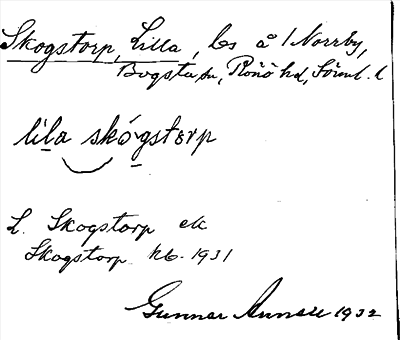 Skogstorp, Lilla, ls å 1 Norrby,
Bogsta sn, Rönö hd, Söml. l
lila skógstorp
L. Skogstorp ek
Skogstorp kb. 1931
Gunnar 1932